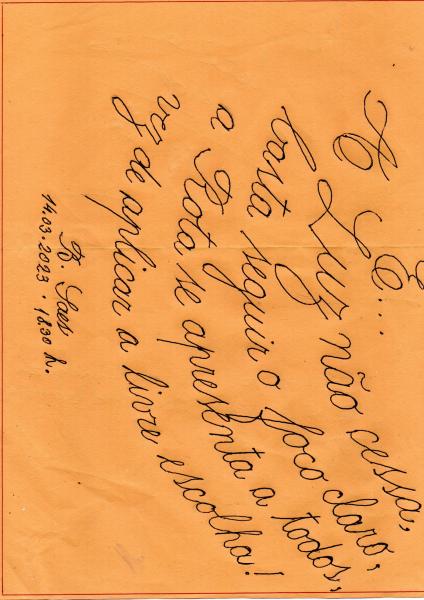 E...
A Luz não cessa,
basta seguir o foco claro,
a Rota se apresenta a todos,
vez de aplicar a livre escolha!
B. Saes
14.03.2023 • 18:30 h.